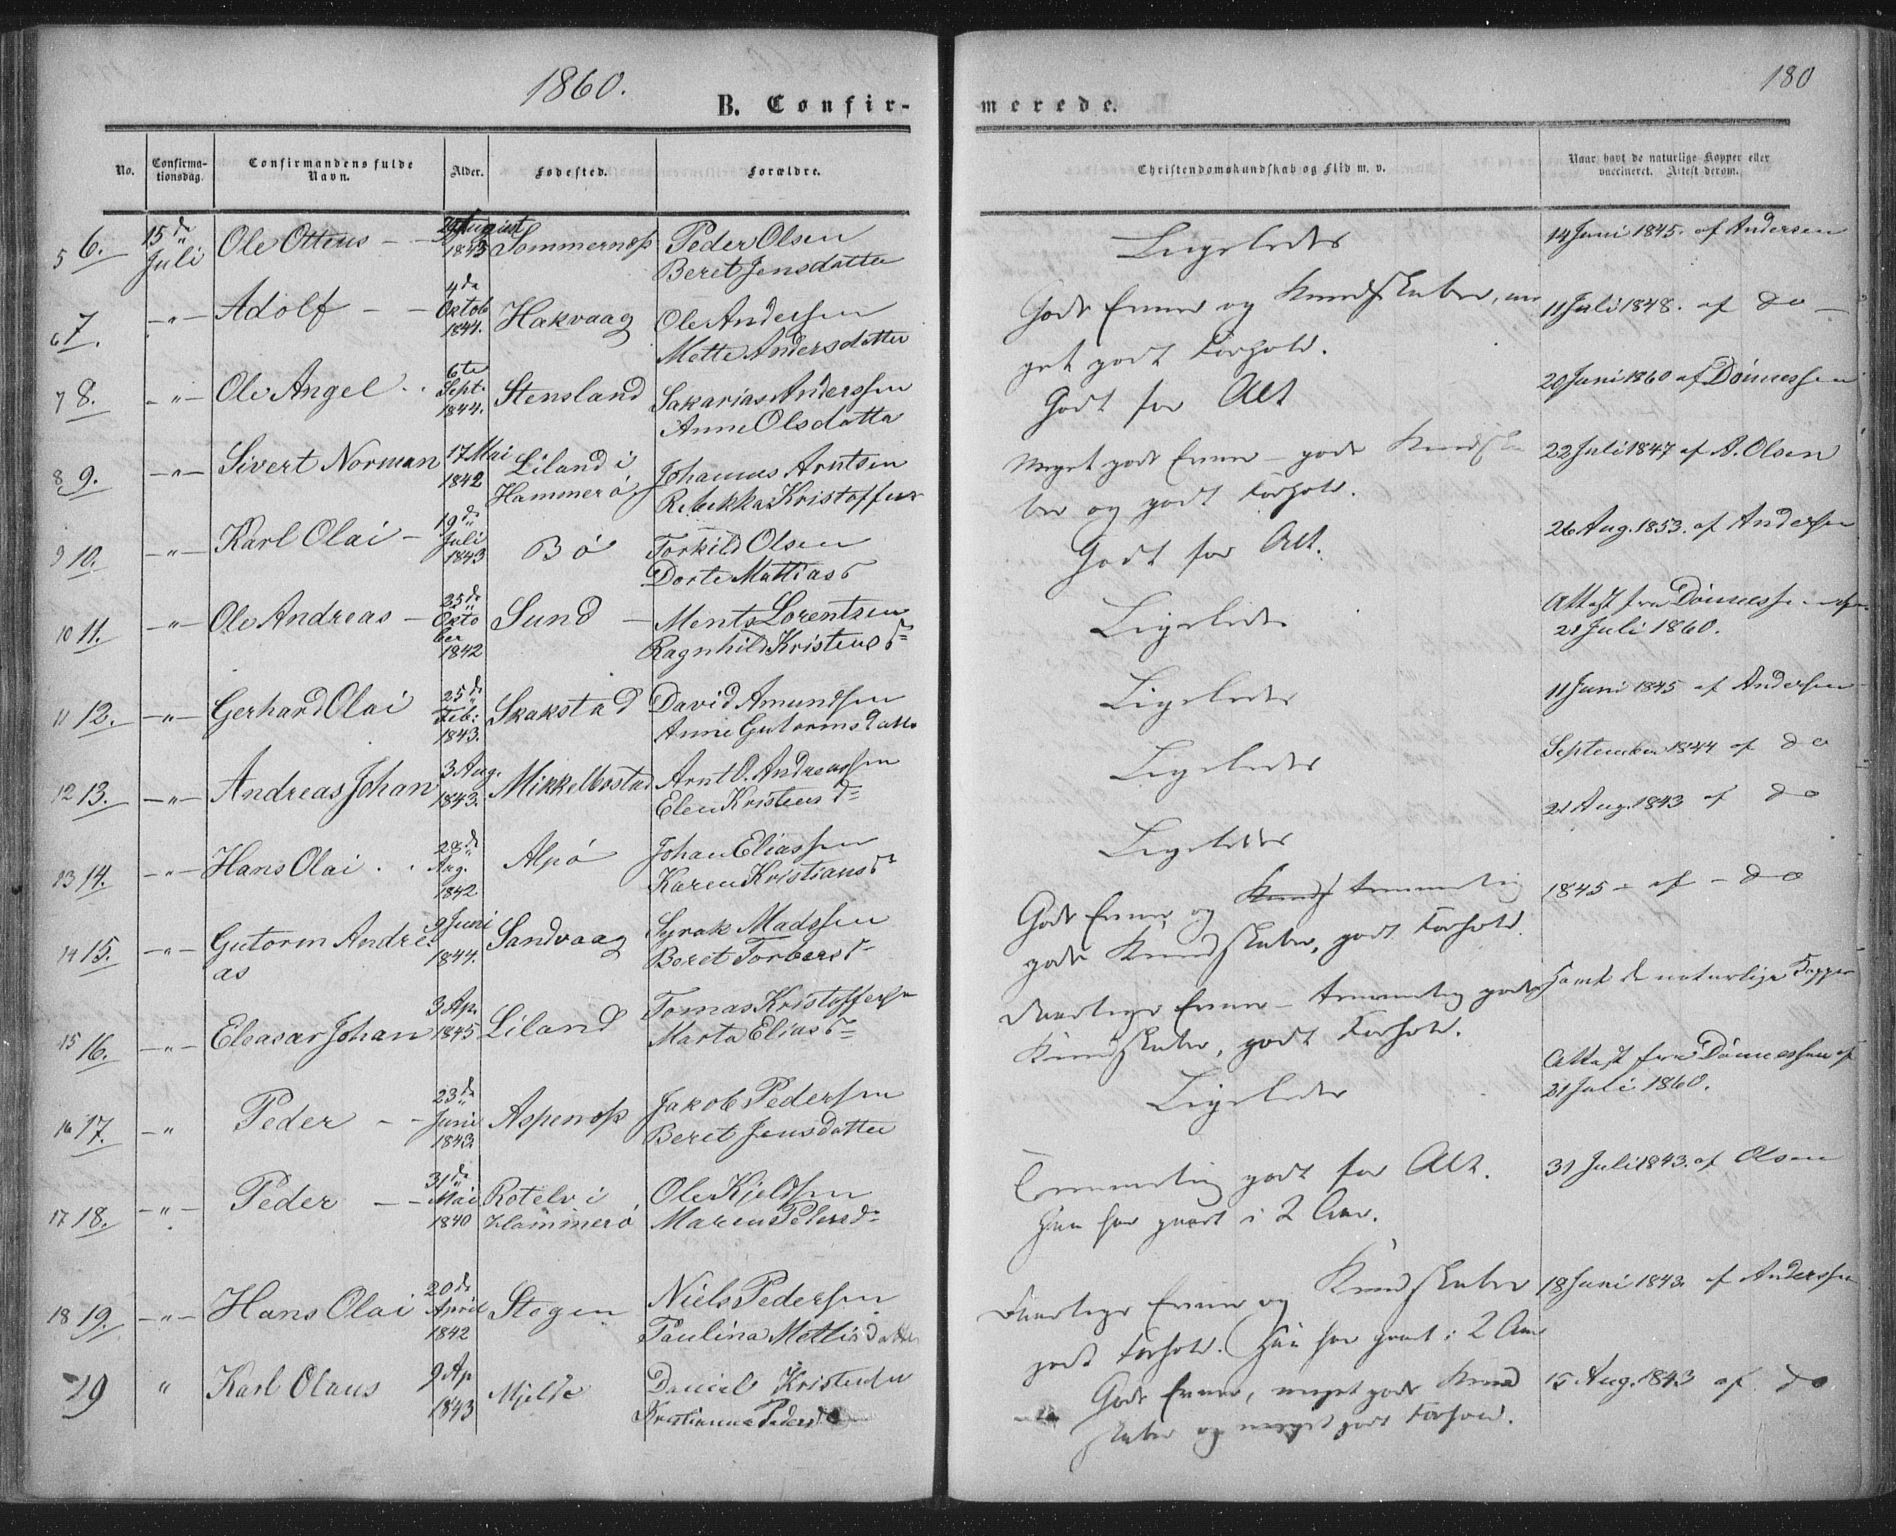 1860.
180
B. Confir-
merede.
No.
Confirma-
tionsdag.
Confirmandens fulde
Navn.
Alder.
Fødested.
Forældre.
Christendomskundskab og Flid m. v.
Naar havt de naturlige Kopper eller
vaccineret. Attest derom.
5 6. 15de Juli Ole Otteus August 1843 Sommernæs Peder Olsen
Beret Jensdatter
Ligeledes
14 Juni 1845. af Andersen
6 7. -"- Adolf 4de Oktob 1844. Hakvaag Ole Andersen
Mette Andersdatter
Gode Evner og Kundskaber, me
get godt Forhold.
11 Juli 1848. af do
7 8. -"- Ole Angel 6te Sept. 1844. Stensland Sakarias Anderssen
Anne Olsdatter
Godt for Alt
20 Juni 1860 af Dønnessen
8 9. -"- Sivert Norman 17 Mai 1842 Liland i
Hammerø Johannes Arntsen
Rebekka Kristoffers
Meget gode Evner - gode Kundska
ber og godt Forhold.
22 Juli 1847 af A. Olsen
9 10. -"- Karl Olai 19de Juli 1843 Bø Torkild Olsen
Dorte Mattiasd
Godt for Alt.
26 Aug. 1853. af Andersen
10 11. -"- Ole Andreas 25de Okto
ber
1842 Sund Ments Lorentsen
Ragnhild Kristensd
Ligeledes
Attest fra Dønnessen af
21 Juli 1860.
11 12. -"- Gerhard Olai 25de Feb: 1843. Skakstad David Amundsen
Anne Gutormsdatter
Ligeledes
11 Juni 1845 af Andersen
12 13. -"- Andreas Johan 3 Aug. 1843. Mikkelbostad Arnt O. Andreassen
Elen Kristensd
Ligeledes
September 1844 af do
13 14. -"- Hans Olai 28de Aug. 1842. Alpø Johan Eliassen
Karen Kristiansd
Ligeledes
21 Aug. 1843 af do
14 15. -"- Gutorm Andre
as 9 Juni 1844. Sandvaag Syrak Madssen
Beret Torbersd
Gode Evner og Kunds temmelig
gode Kundskaber, godt Forhold.
1845 - af - do
15 16. -"- Eleasar Johan 3 Ap. 1845 Liland Tomas Kristoffersen
Marta Eliasd
Maadelige Evner - temmelig gode
Kundskaber, godt Forhold.
Havt de naturlige Kopper
16 17. -" Peder 23de Juni 1843. Aspenæs Jakob Pedersen
Beret Jensdatter
Ligeledes
Attest fra Dønnessen af
21 Juli 1860.
17 18. -"- Peder 31de Mai 1840 Rotelv i
Hammerø Ole Kjeldsen
Maren Petersd
Temmelig godt for Alt.
Han har gaaet i 2 Aar.
31 Juli 1843. af Olsen
18 19. -"- Hans Olai 20de April 1842 Stegen Niels Pedersen
Paulina Mettisdatter
Maadelige Evner og Kundskaber
godt Forhold. Han har gaaet i 2 Aar
18 Juni 1843. af Anderssen
29 " Karl Olaus 9 Ap 1843 Mjelde Daniel Kristensen
Kristianna Pedersd
Gode Evner, meget gode Kund
skaber og meget godt Forhold.
15 Aug. 1843 af do